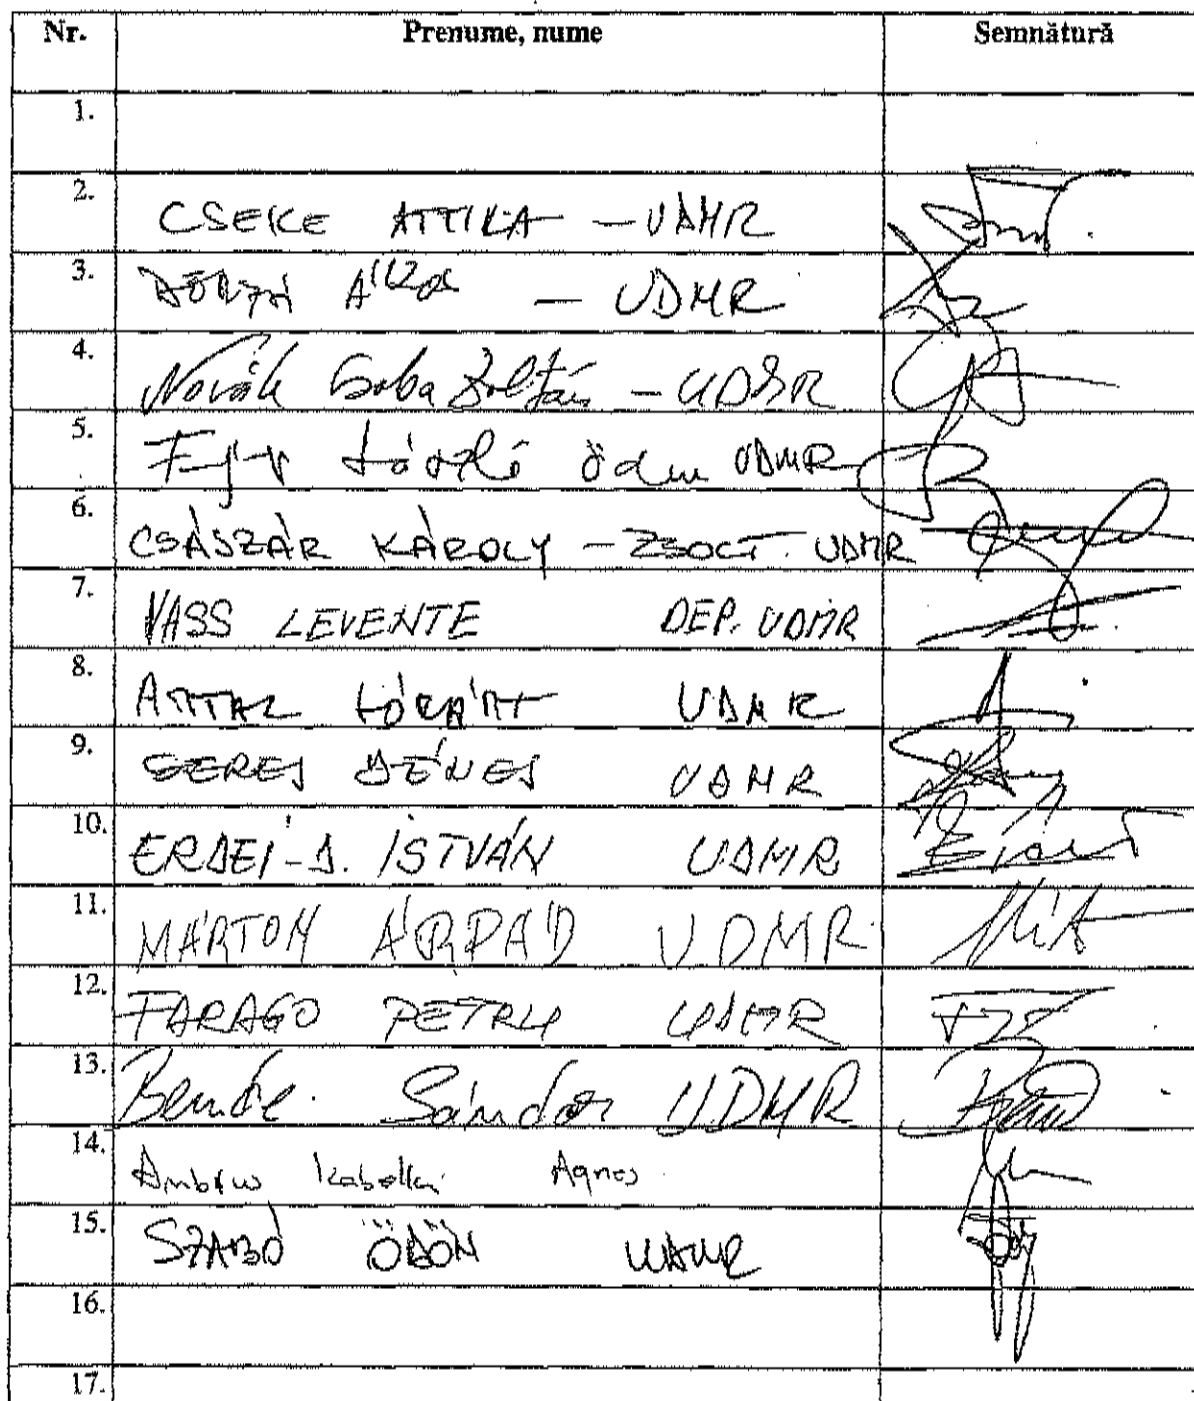 Nr. Prenume, nume Semnătură
1.
2. CSEKE ATTILA - UDMR
3. - UDMR
4. Novák Csaba Zoltán - UDMR
5. László Ödön UDMR
6. CSÁSZÁR KÁROLY - ZSOLT. UDMR
7. VASS LEVENTE DEP. UDMR
8. ANTAL LÓRÁNT UDMR
9. SERES DÉNES UDMR
10. ERDEI-D. ISTVÁN UDMR
11. MÁRTON ÁRPÁD UDMR
12. FARAGO PETRU UDMR
13. Bende Sándor UDMR
14. Ambrus Izabella Agnes
15. SZABÓ ÖDÖN UDMR
16.
17.